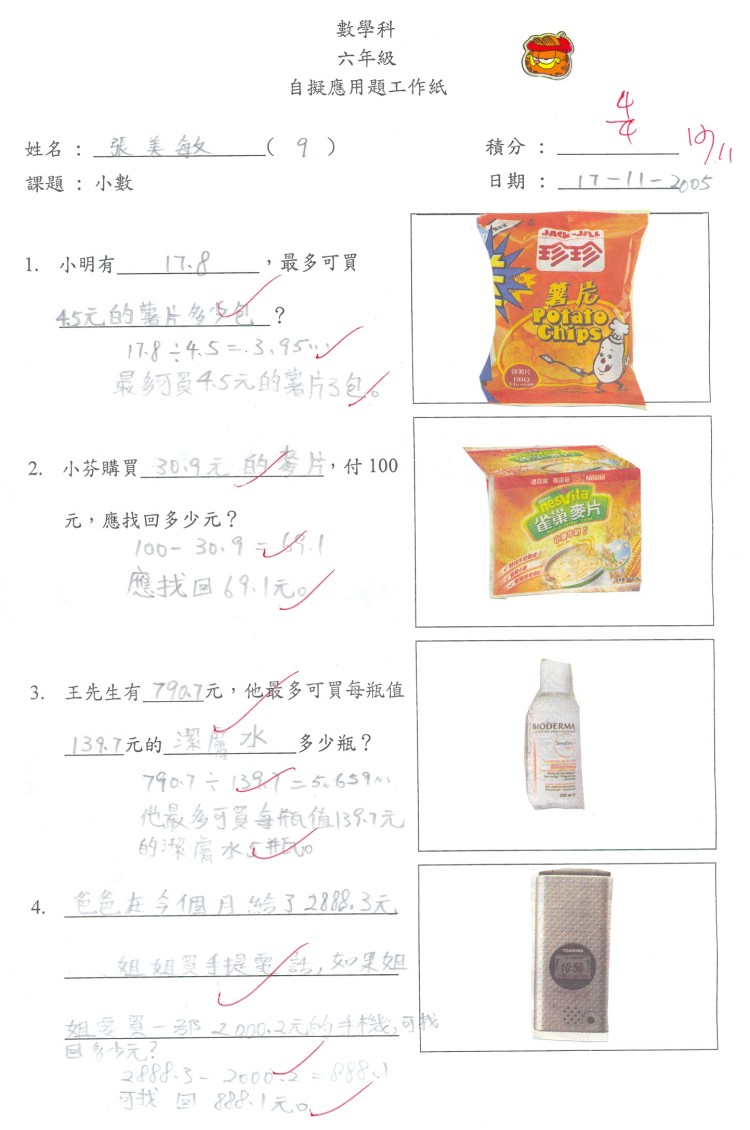 數學科
六年級
自擬應用題工作紙
4/4
19/11
姓名 : 張美敏 ( 9 )
積分 :
課題 : 小數
日期 : 17-11-2005
1. 小明有 17.8 ,最多可買
4.5元的薯片多少包 ?
17.8÷4.5=3.95…
最多可買4.5元的薯片3包。
JACK'n JILL
珍珍
薯片
Potato Chips
BBQ
2. 小芬購買 30.9元的麥片,付100
元,應找回多少元?
100-30.9=69.1
應找回69.1元。
Nestlé
nesvita
雀巢麥片
3. 王先生有 790.7元,他最多可買每瓶值
139.7元的 潔膚水 多少瓶?
790.7÷139.7=5.659…
他最多可買每瓶值139.7元
的潔膚水5瓶。
BIODERMA
Sensibio
4. 爸爸在今個月給了2888.3元
姐姐買手提電話,如果姐
姐要買一部2000.2元的手機,可找
回多少元?
2888.3-2000.2=888.1
可找回888.1元。
TOSHIBA
10:50